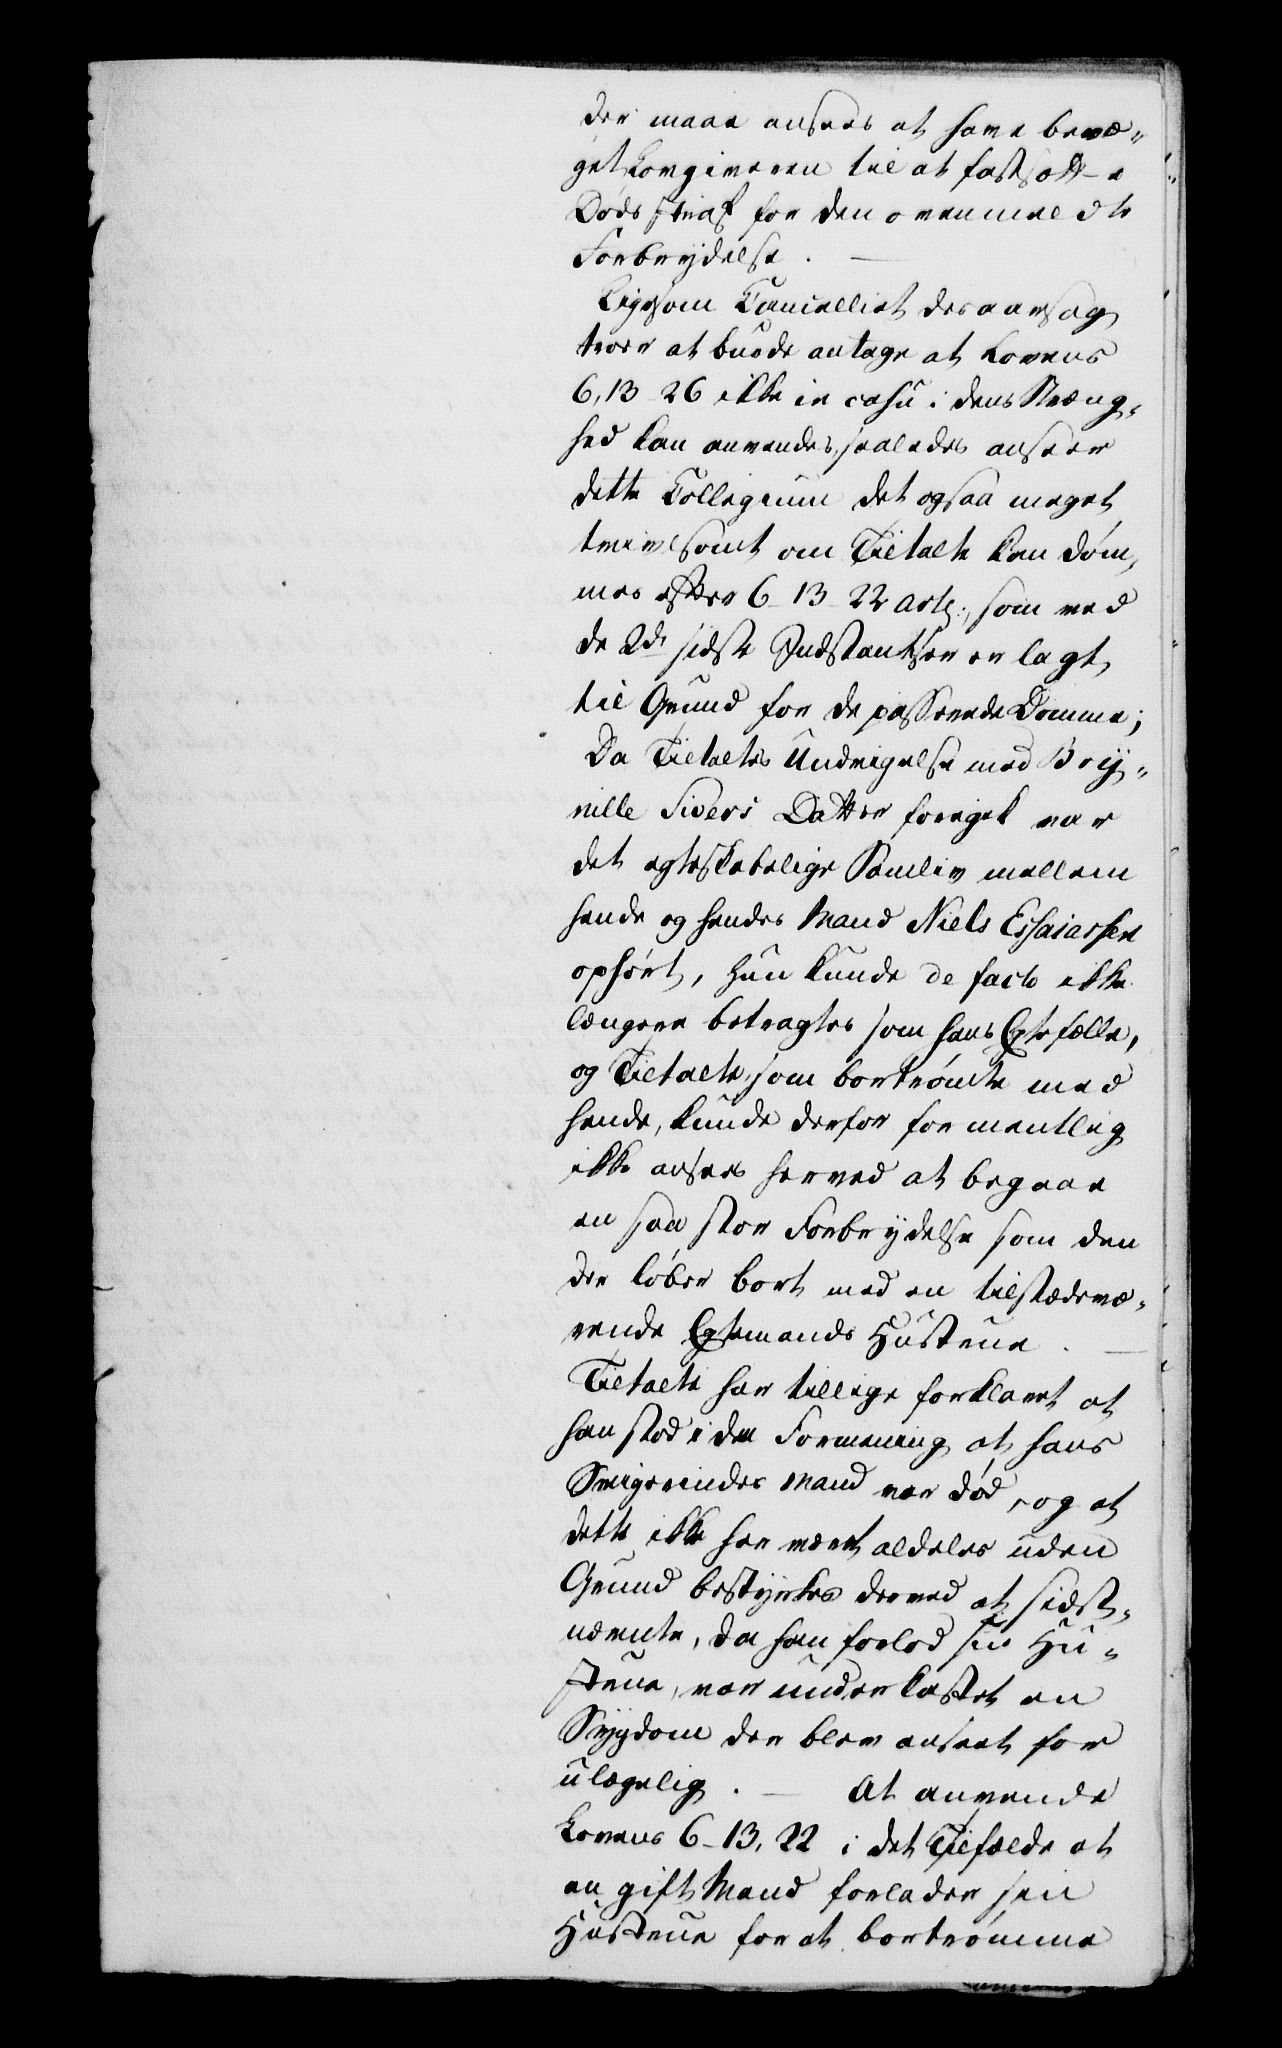 der maae ansees at have bevæ-
get Lovgiveren til at fastsætte
Dødsstraf for den ovenmeldte
Forbrydelse. —
Ligesom Cancelliet desaarsag
troer at burde antage at Lovens
6, 13-26 ikke in casu i dens Stræng-
hed kan anvendes, saaledes anseer
dette Collegium det ogsaa meget
tvivlsomt om Tiltalte kan døm-
mes efter 6-13-22 Art:, som ved
de 2de sidste Instantser er lagt
til Grund for de passerede Domme;
Da Tiltaltes Undvigelse med Bry-
nille Sivers Datter foregik var
det egteskabelige Samliv mellem
hende og hendes Mand Niels Essaiassen
ophørt, hun kunde de facto ikke
længere betragtes som hans Egtefælle,
og Tiltalte, som bortrømte med
hende, kunde derfor formentlig
ikke ansees herved at begaae
en saa stor Forbrydelse som den
der løber bort med en tilstædevæ-
rende Egtemands Hustrue. —
Tiltalte har tillige forklaret at
han stod i den Formening at hans
Svigerindes Mand var død, og at
dette ikke har været aldeles uden
Grund bestyrkes derved at sidst-
nævnte, da han forlod sin Hu-
strue, var underkastet en
Sygdom der blev anseet for
ulægelig. — At anvende
Lovens 6-13,22 i det Tilfælde at
en gift Mand forlader sin
Hustrue for at bortrømme